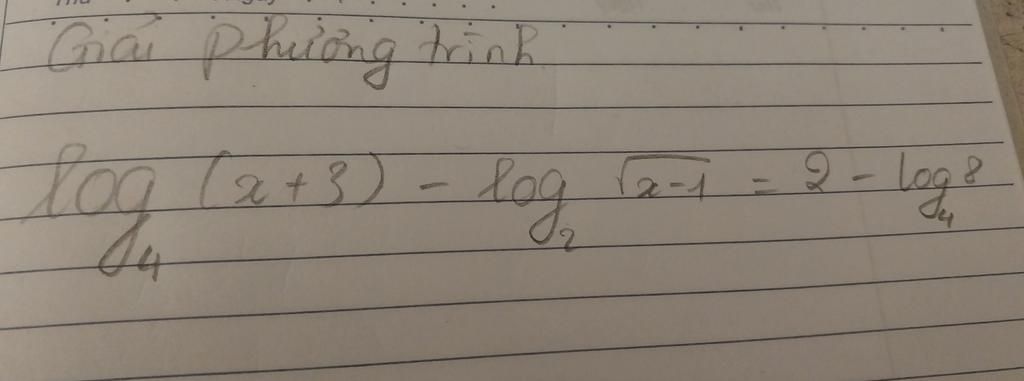 Giải phương trình
log₄ (x+3) - log₂ √(x-1) = 2 - log₄ 8